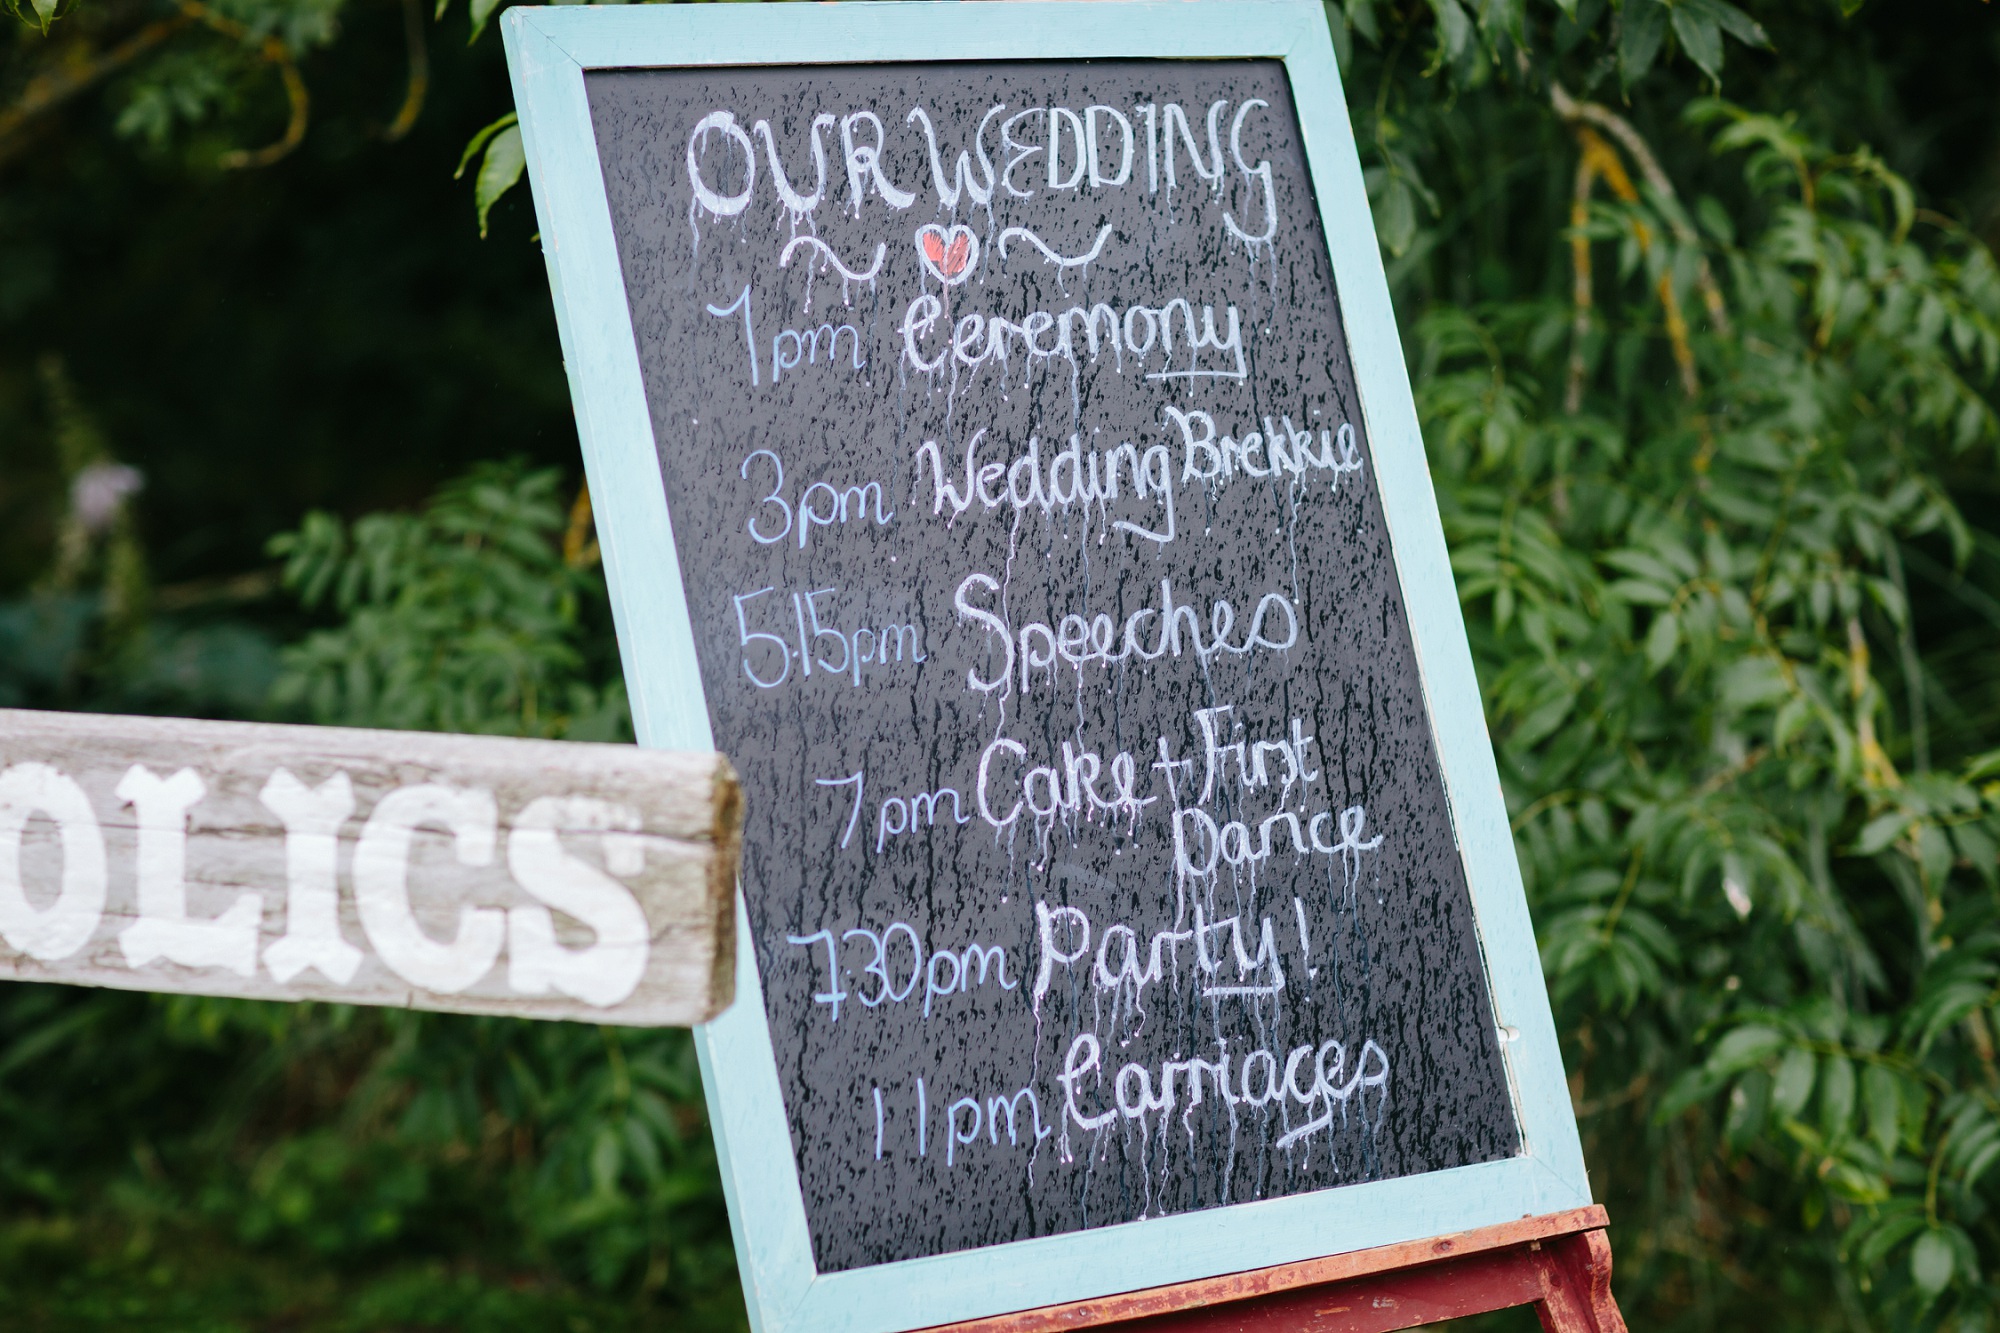 OUR WEDDING
1pm Ceremony
3pm Wedding Brekkie
5.15pm Speeches
7pm Cake + First
Dance
7.30pm Party!
11pm Carriages
OLICS